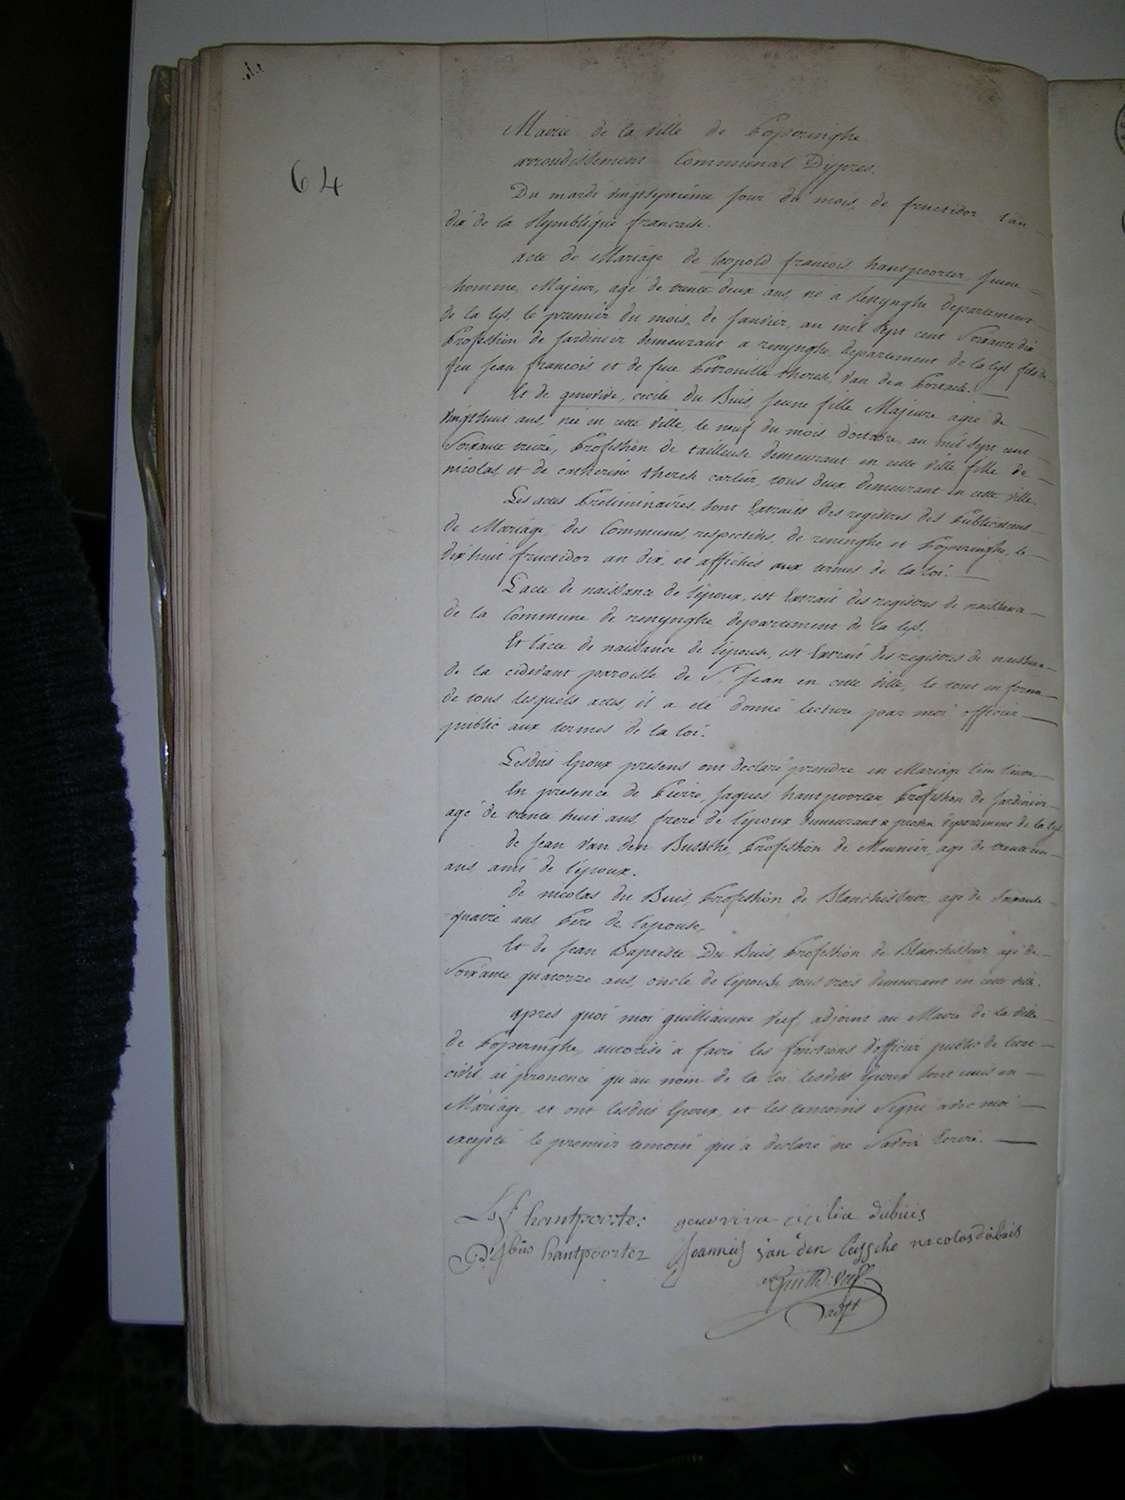 64
Mairie de la ville de Poperinghe
arrondissement Communal Dypres.
Du mardi vingtseptième jour du mois de fructidor l'an
dix de la République française.
acte de Mariage de Leopold francois hantpoorter Jeune
homme Majeur, agé de trente deux ans, né a Renynghe departement
de la Lys, le premier du mois de Janvier, an mil sept cent Soixante dix
Profession de Jardinier demeurant a renynghe departement de la Lys fils de
feu Jean francois et de feue Petronille therese Van den
Et de genoveve, cecile du Buis Jeune fille Majeure agée de
vingthuit ans, née en cette ville, le neuf du mois doctobre an mil Sept cent
Soixante treize, Profession de tailleuse demeurant en cette ville fille de
nicolas et de catherine therese carlier, tous deux demeurant en cette ville.
Les actes Préliminaires sont Extraits des registres des Publications
de Mariage des Communes respectives de reninghe et Poperinghe, le
dixhuit fructidor an dix, et affichés aux termes de la loi.
L'acte de naissance de l'époux, est Extrait des registres de naissance
de la Commune de renynghe departement de la Lys.
Et l'acte de naissance de l'épouse, est Extrait des registres de naissance
de la cidevant parroisse de St Jean en cette ville, le tout en forme
de tous lesquels actes, il a été donné lecture par moi officier
public aux termes de la loi.
Lesdits Epoux presens ont declaré prendre en Mariage l'un l'autre
En presence de Pierre Jaques hantpoorter Profession de Jardinier
agé de trente huit ans, frere de l'epoux demeurant a departement de la Lys
de Jean Van den Bussche, Profession de Meunier, age de trente un
ans ami de l'époux.
de nicolas du Buis, Profession de Blanchisseur, age de Soixante
quatre ans Père de l'epouse,
Et de Jean Baptiste Du Buis Profession de Blanchisseur agé de
Soixante quatorze ans, oncle de l'épouse tous trois demeurant en cette ville.
après quoi moi guilliaume Veuf adjoint au Maire de la ville
de Poperinghe, autorisé a faire les fonctions d'officier public de l'etat
civil, ai prononcé qu'au nom de la loi lesdits Epoux sont unis en
Mariage, et ont lesdits Epoux, et les temoins Signé avec moi
excepté le premier temoin qu'a declaré ne Savoir Ecrire.
hantpoorter genoviva cicilia dubuis
hantpoorter Joannes van den bussche nicolas dubuis
adjt